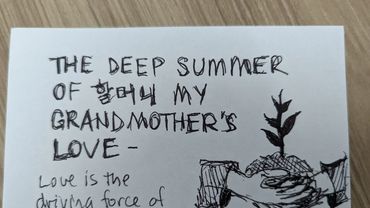 THE DEEP SUMMER
OF 할머니 MY
GRANDMOTHER'S
LOVE –
Love is the
driving force of